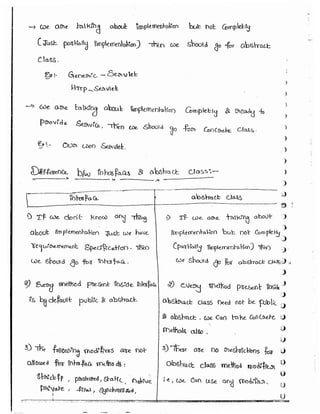 → we are talking about implementation but not completely
(Just partially implementation) then we should go for abstract
class.
Ex:- Generic - Servlet
Http - Servlet
→ we are talking about implementation completely & ready to
provide service, then we should go for concrete class.
Ex:- Own won Servlet.
Difference b/w interfaces & abstract classes:-
interface
abstract class
1) If we don't know any thing
about implementation Just we have
requirement specification. then
we should go for interface.
1) If we are talking about
implementation but not completely
(partially implementation) then
we should go for abstract class.
2) Every method present inside interface
is by default public & abstract.
2) every method present inside
abstract class need not be public
& abstract. we can take concrete
methods also.
3) The following modifiers are not
allowed for interface methods:
strictfp, protected, static, native
private, final, synchronized.
3) There are no restrictions for
abstract class method modifiers
i.e, we can use any modifiers.